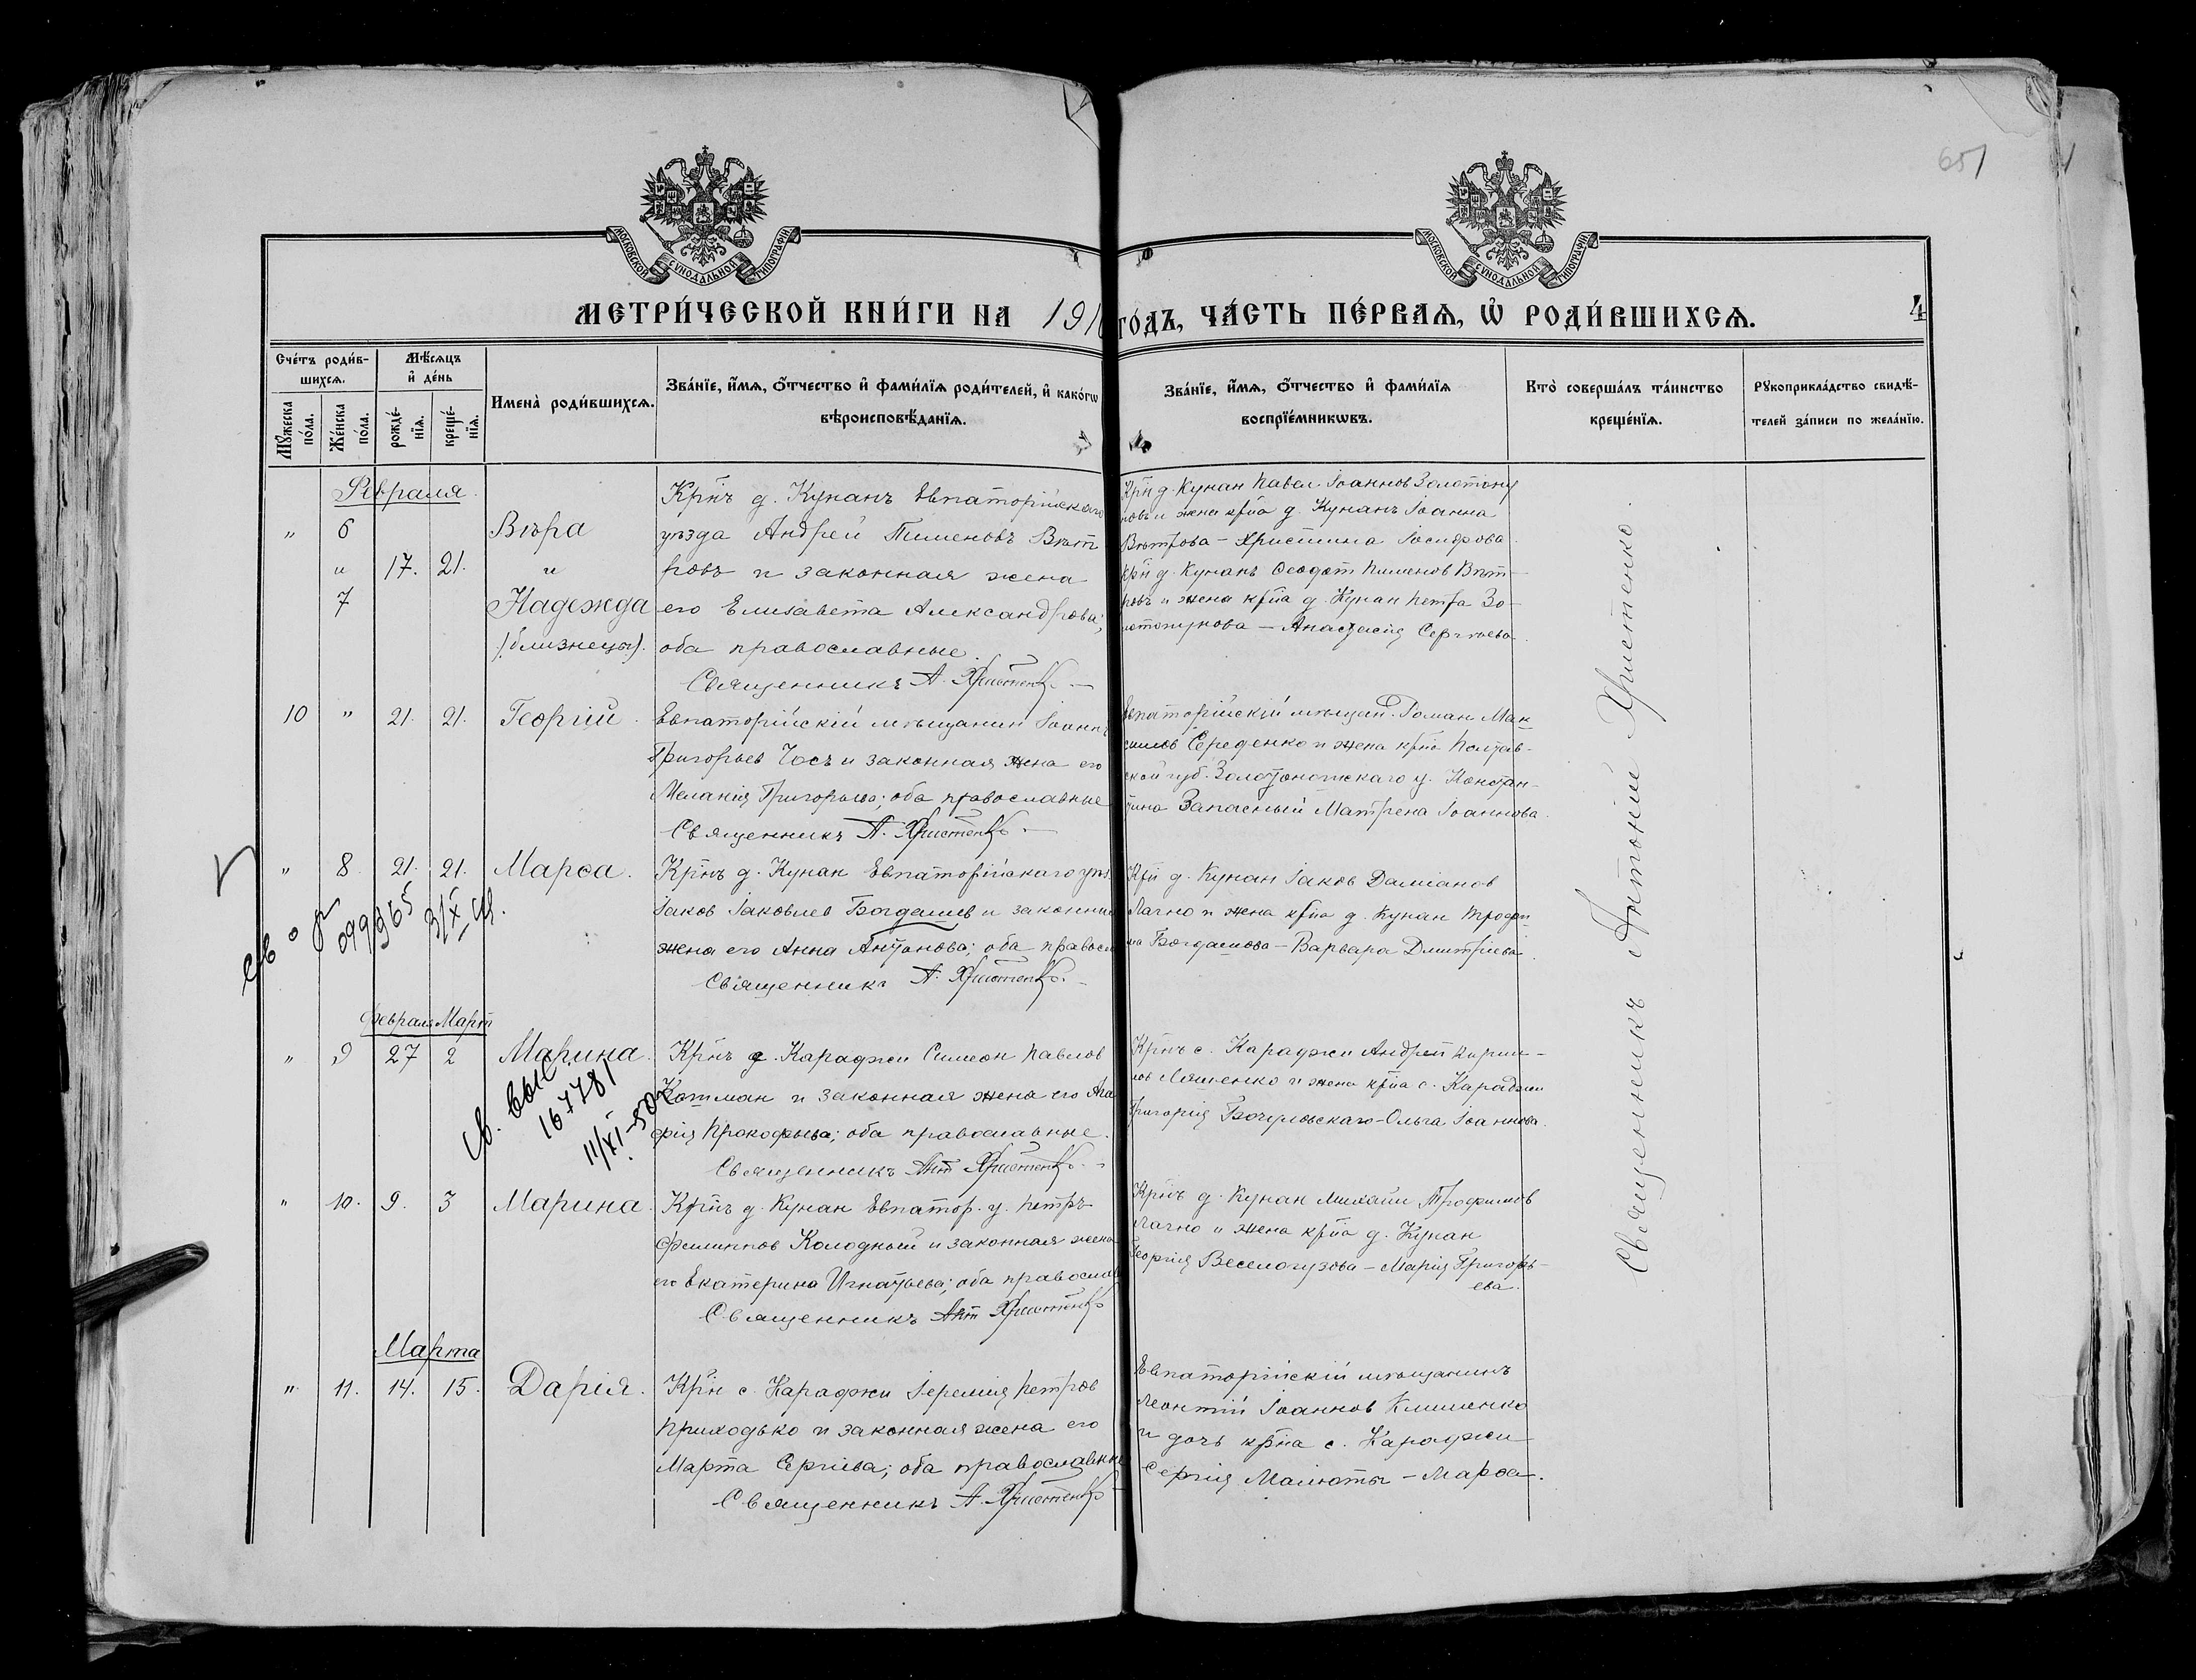 651
МОСКОВСКОЙ СѴНОДАЛЬНОЙ ТИПОГРАФІИ
МОСКОВСКОЙ СѴНОДАЛЬНОЙ ТИПОГРАФІИ
МЕТРИ́ЧЕСКОЙ КНИ́ГИ НА 191
ГО́ДЪ, ЧА́СТЬ ПЕ́РВАѦ, Ѡ҆ РОДИ́ВШИХСѦ.
4
Сче́тъ роди́в-
шихсѧ.
Мѣ́сѧцъ
и҆ де́нь
Мꙋ́жеска
по́ла.
Же́нска
по́ла.
рожде́-
нїѧ.
креще́-
нїѧ.
Имена̀ роди́вшихсѧ.
Зва́нїе, и҆́мѧ, ѻ҆́тчество и҆ фами́лїѧ роди́телей, и҆ како́гѡ
вѣроисповѣ́данїѧ.
Зва́нїе, и҆́мѧ, ѻ҆́тчество и҆ фами́лїѧ
воспрїе́мникѡвъ.
Кто̀ соверша́лъ та́инство
креще́нїѧ.
Рꙋкоприкла́дство свидѣ́-
телей за́писи по жела́нїю.
Февраля
" 6
Вѣра
" 17. 21. "
7
Надежда
(близнецы).
Крнъ д. Кунанъ Евпаторійскаго
уѣзда Андрей Пименовъ Вѣт
ровъ и законная жена
его Елизавета Александрова;
оба православные.
Священникъ А. Христенко
Крн д. Кунан Павел Іоаннов Золотону
новъ и жена крна д. Кунанъ Іоанна
Вѣтрова – Христина Іосифова.
Крн д. Кунанъ Ѳеодот Пименов Вѣт-
ровъ и жена крна д. Кунан Петра Зо-
– Анастасія Сергѣева.
10 " 21. 21. Георгій.
Евпаторійскій мѣщанин Іоаннъ
Григорьев Чосъ и законная жена его
Меланія Григорьева; оба православные
Священникъ А. Христенко
Евпаторійскій мѣщан. Роман Мак
симов Середенко и жена крна Полтав-
ской губ. Золотоношскаго у. Констан-
тина Запасный Матрена Іоаннова.
" 8 21. 21. Марѳа.
Крнъ д. Кунан Евпаторійскаго уѣз.
Іаков Іаковлев Богдашев и законная
жена его Анна Антонова; оба правосл
Священникъ А. Христенко.
Крн д. Кунан Іаков Даміанов
Лагно и жена крна д. Кунан Трофи
ма Богдашова – Варвара Дмитріева.
св о р
099365
3/X
Февраля Март
" 9 27 2 Марина.
Крнъ с. Караджи Симеон Павлов
Котман и законная жена его Ага
фія Прокофьева; оба православные.
Священникъ Ант Христенко.
Крнъ с. Караджи Андрей Кирил-
лов Ляшенко и жена крна с. Караджи
Григорія Бочуловскаго – Ольга Іоаннова.
св. выс.
167781
11/XI-50
" 10. 9. 3 Марина.
Крнъ д. Кунан Евпатор. у. Петръ
Филиппов Колодный и законная жена
его Екатерина Игнатьева; оба православ
Священникъ Ант Христенко
Крнъ д. Кунан Михаил Трофимов
Лагно и жена крна д. Кунан
Георгія Веселогузова – Марія Григорь-
ева.
Марта
" 11. 14. 15. Дарія.
Крн с. Караджи Іеремія Петров
Приходько и законная жена его
Марта Сергіева; оба православные
Священникъ А. Христенко
Евпаторійскій мѣщанинъ
Леонтій Іоаннов Клименко
и дочь крна с. Караджи
Сергія Малюты – Марѳа.
Священникъ Антоній Христенко.